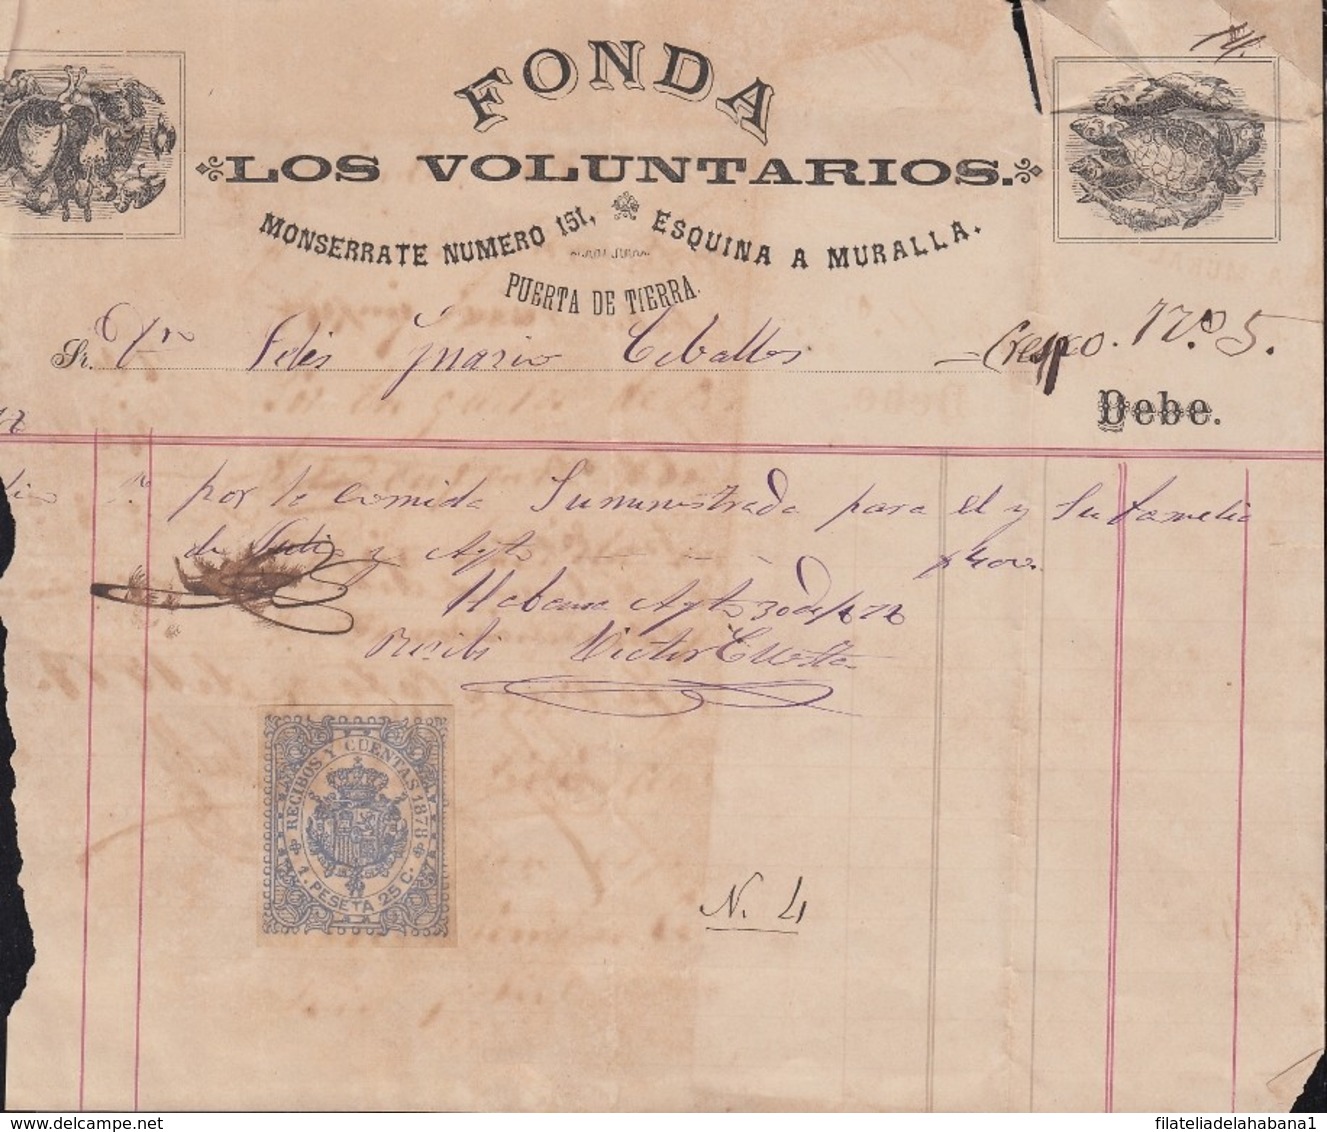 FONDA
LOS VOLUNTARIOS.
MONSERRATE NUMERO 151, ESQUINA A MURALLA.
PUERTA DE TIERRA.
Sr. Dn Ceballos Crespo. 17. 5.
Debe.
por la comida Suministrada para el y Su familia
de Julio y Agto $400.
Habana Agto 30 de 1878
Recibi Victor Cuesta
RECIBOS Y CUENTAS 1878
1. PESETA 25 C.
N. 4
filateliadelahabana1